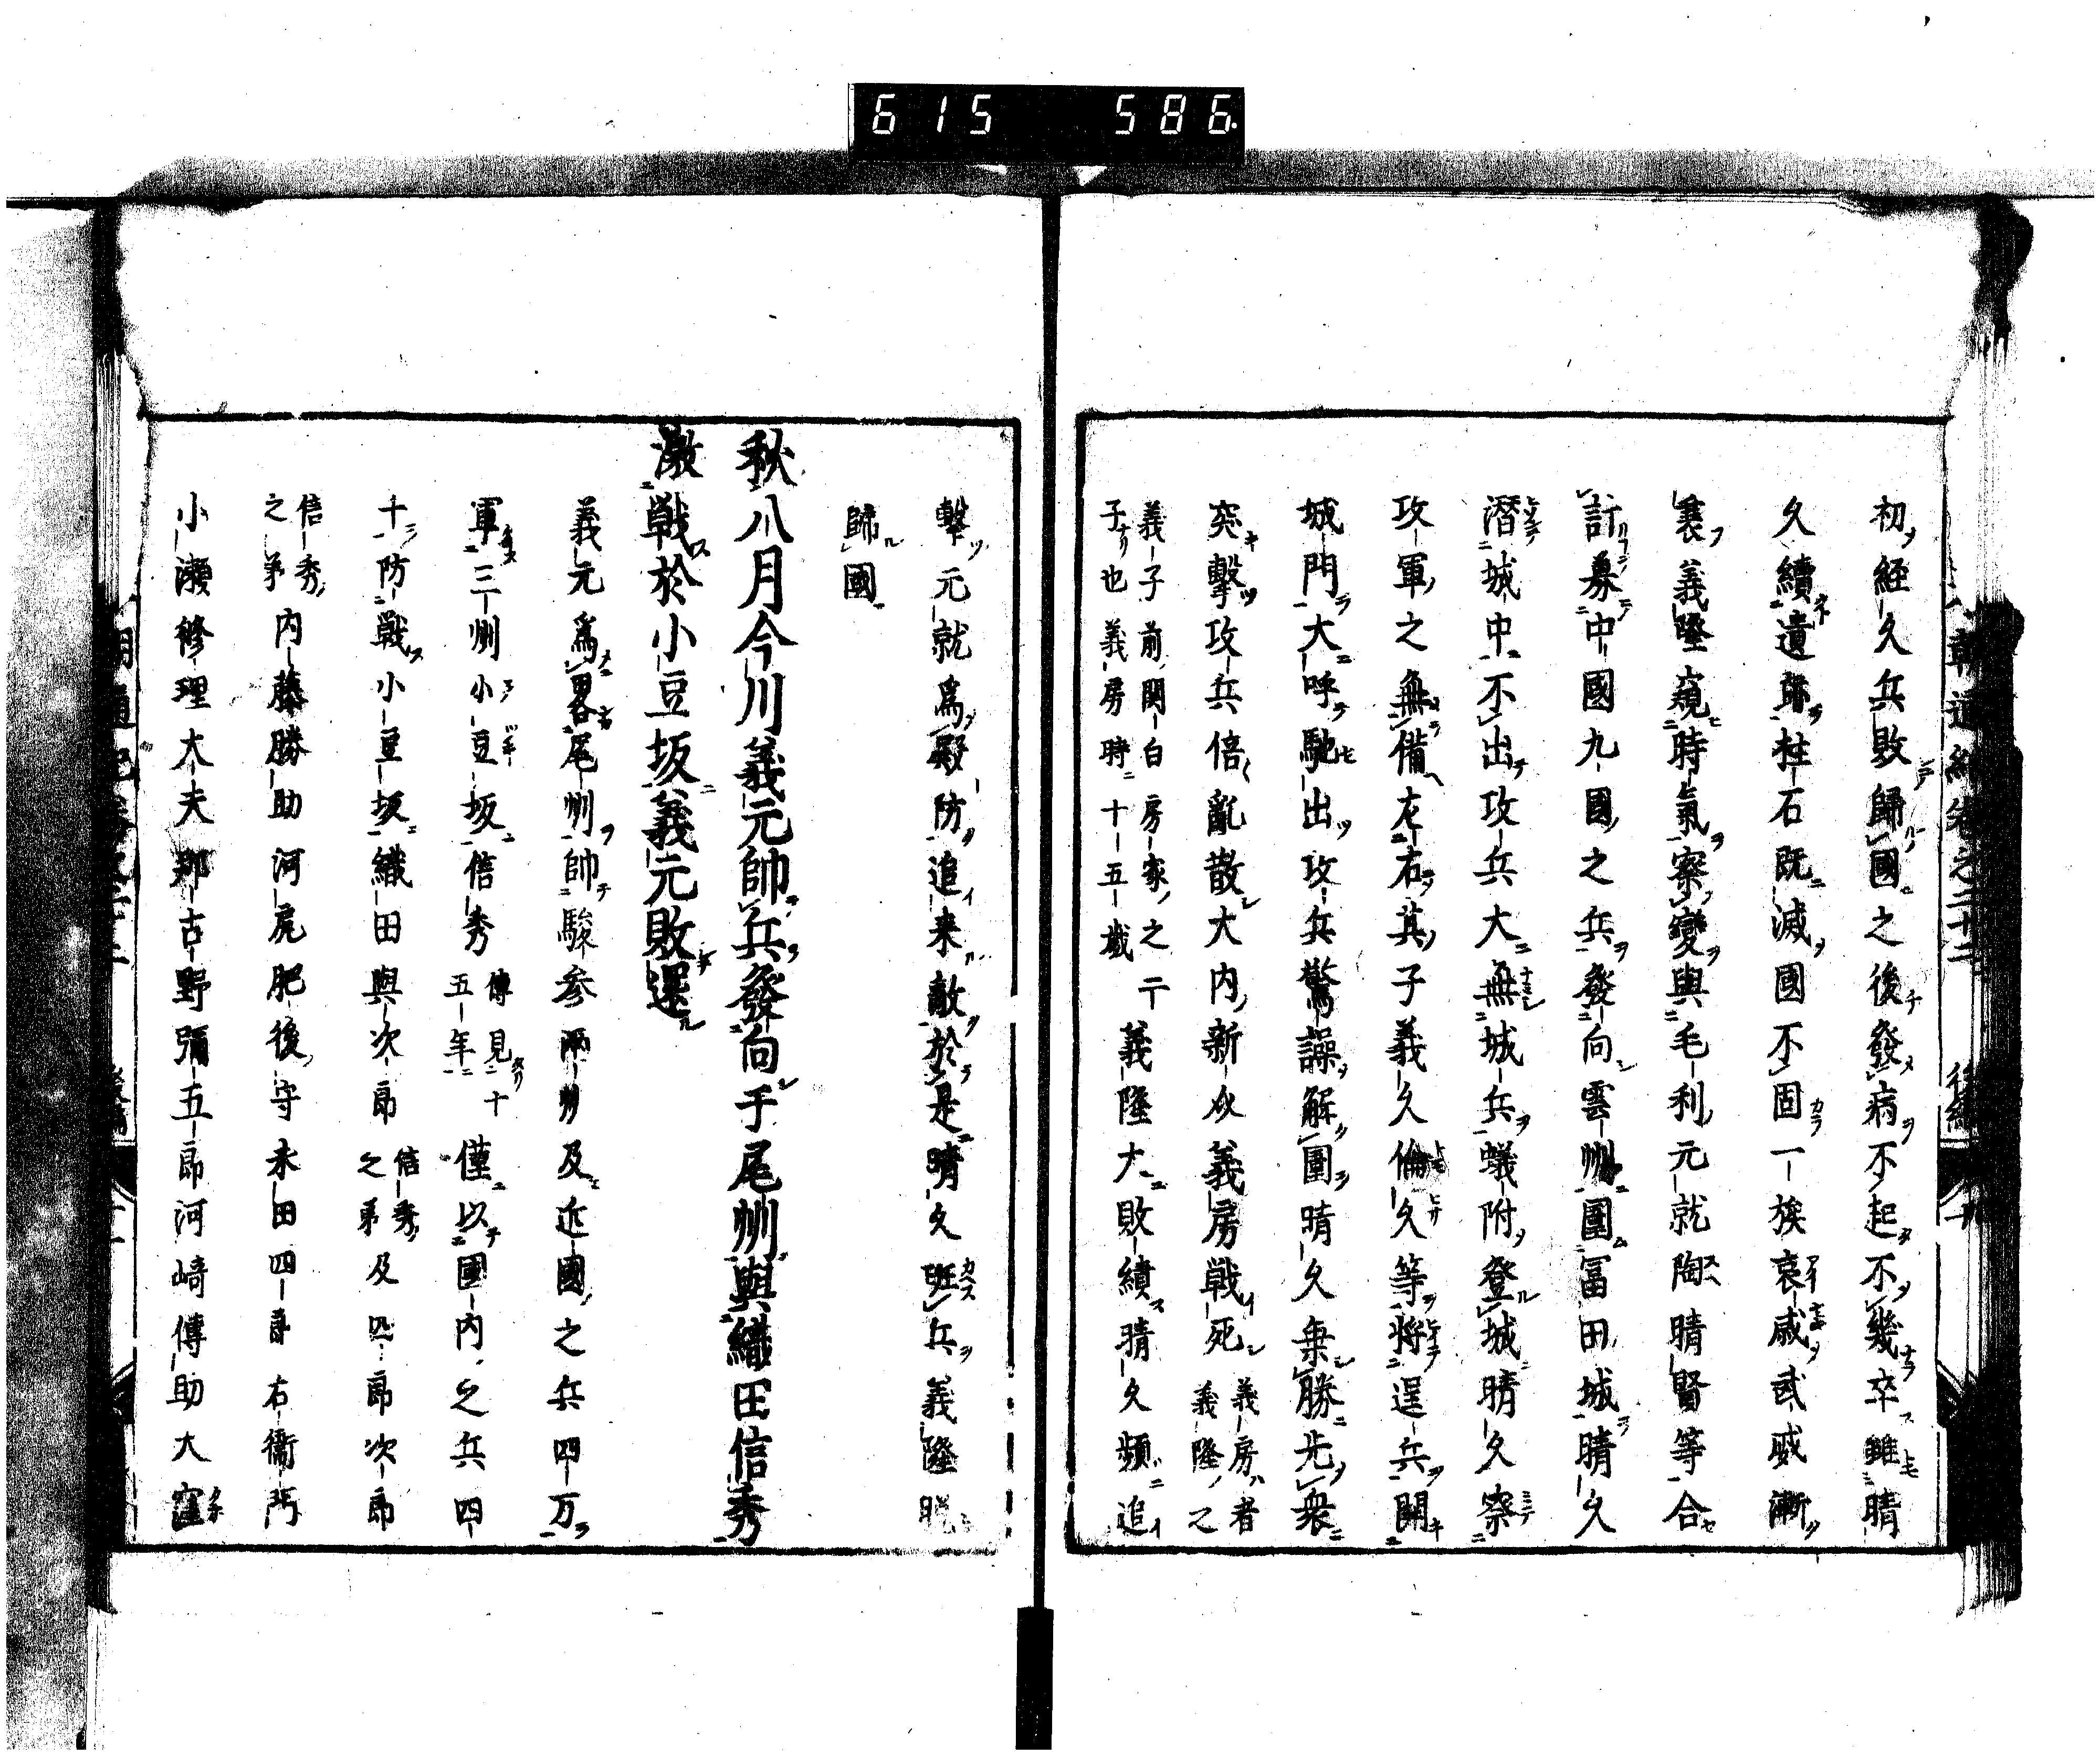 615 586.
初経久兵敗歸國之後發病不起不幾卒雖晴
久續遺跡柱石既滅國不固一族哀戚武威漸
衰義隆窺時氣察變與毛利元就陶晴賢等合
計募中國九國之兵發向雲州圍冨田城晴久
潜城中不出攻兵大無城兵蟻附登城晴久察
攻軍之無備左右其子義久倫久等將逞兵開
城門大呼馳出攻兵驚譟解圍晴久乗勝先衆
突擊攻兵倍亂散大内新介義房戦死 義房者義隆之
義子前関白房家之二子也義房時十五歳 義隆大敗績晴久頻追
擊元就為殿防追来敵於是晴久班兵義隆
歸國
秋八月今川義元帥兵發向于尾州與織田信秀
激戦於小豆坂義元敗還
義元為畧尾州帥駿参兩州及近國之兵四万
軍三州小豆坂信秀 傳見二十五年 僅以國内之兵四
十防戦小豆坂織田與次郎 信秀之弟 及四郎次郎
信秀之弟 内藤勝助河尻肥後守永田四郎右衞門
小瀬修理大夫那古野彌五郎河崎傳助大窪